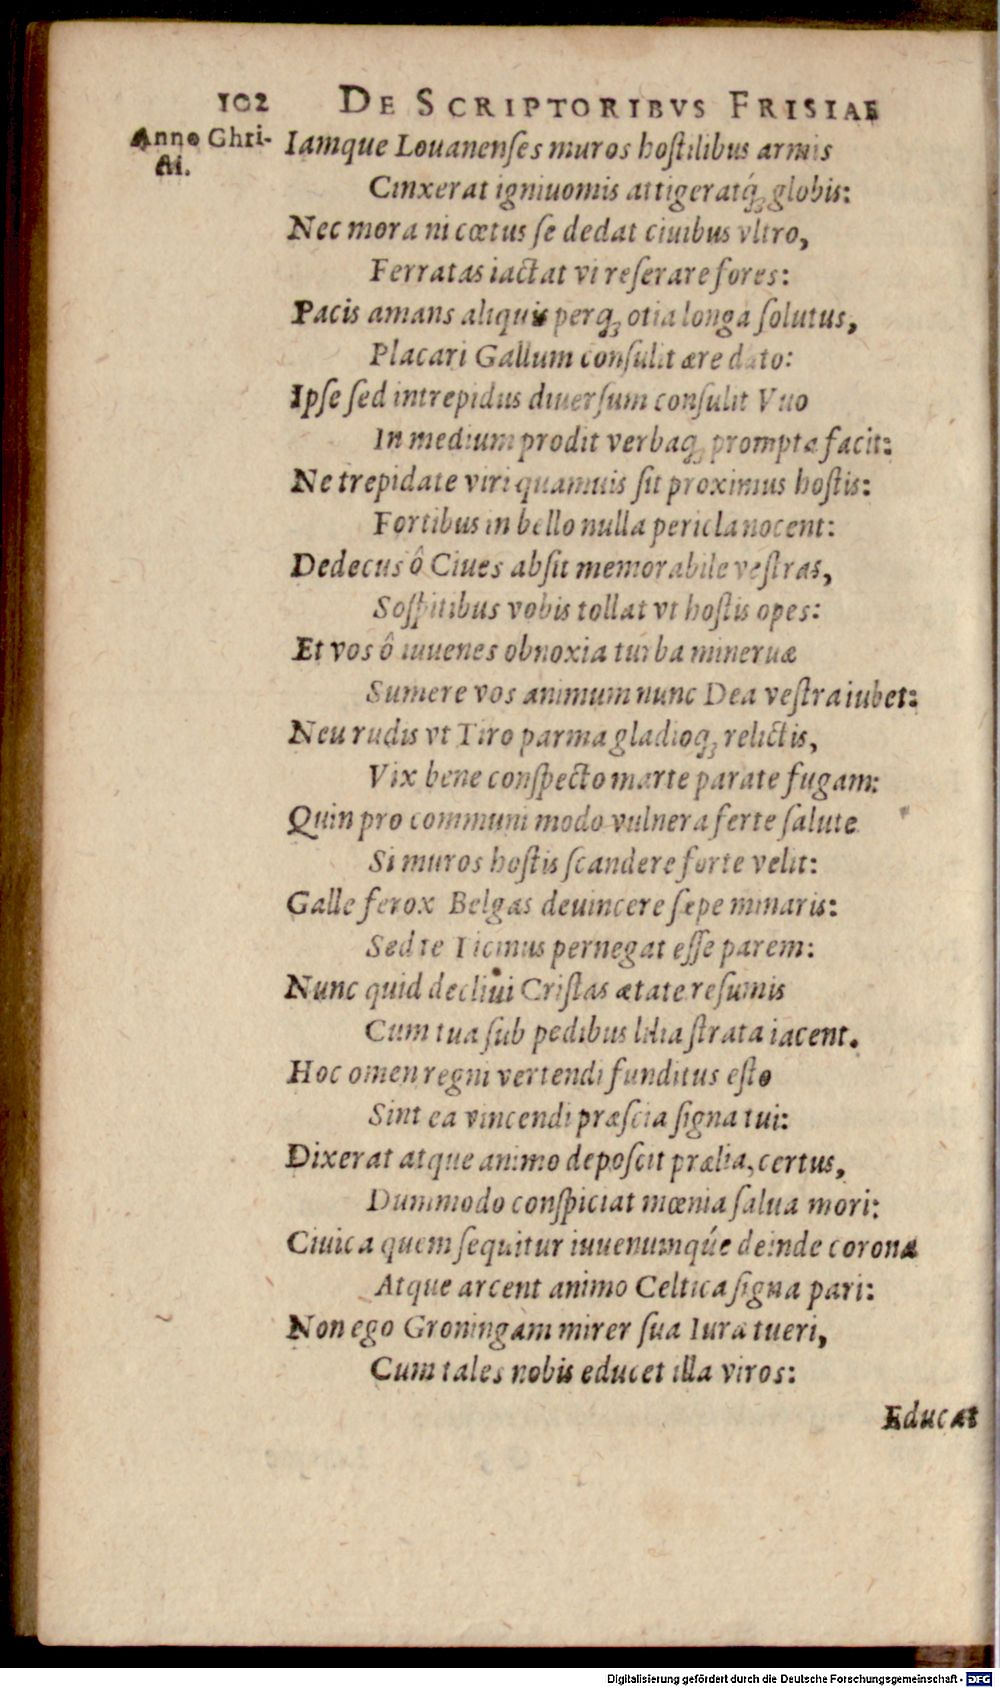 102 DE SCRIPTORIBVS FRISIAE
Anno Ghri-
sti.
Iamque Louanenſes muros hoſtilibus armis
Cinxerat igniuomis attigeratq́ꝫ globis:
Nec mora ni cœtus ſe dedat ciuibus vltro,
Ferratas iactat vi reſerare fores:
Pacis amans aliquis perqꝫ otia longa ſolutus,
Placari Gallum conſulit ære dato:
Ipſe ſed intrepidus diuerſum conſulit Vuo
In medium prodit verbaqꝫ prompta facit:
Ne trepidate viri quamuis ſit proximus hoſtis:
Fortibus in bello nulla pericla nocent:
Dedecus ô Ciues abſit memorabile veſtras,
Soſpitibus vobis tollat vt hoſtis opes:
Et vos ô iuuenes obnoxia turba mineruæ
Sumere vos animum nunc Dea veſtra iubet:
Neu rudis vt Tiro parma gladioqꝫ relictis,
Vix bene conſpecto marte parate fugam:
Quin pro communi modo vulnera ferte ſalute
Si muros hoſtis ſcandere forte velit:
Galle ferox Belgas deuincere ſæpe minaris:
Sed te Ticinus pernegat eſſe parem:
Nunc quid decliui Criſtas ætate reſumis
Cum tua ſub pedibus lilia ſtrata iacent.
Hoc omen regni vertendi funditus eſto
Sint ea vincendi præſcia ſigna tui:
Dixerat atque animo depoſcit prælia, certus,
Dummodo conſpiciat mœnia ſalua mori:
Ciuica quem ſequitur iuuenumqúe deinde corona
Atque arcent animo Celtica ſigna pari:
Non ego Groningam mirer ſua Iura tueri,
Cum tales nobis educet illa viros:
Educat
Digitalisierung gefördert durch die Deutsche Forschungsgemeinschaft - DFG